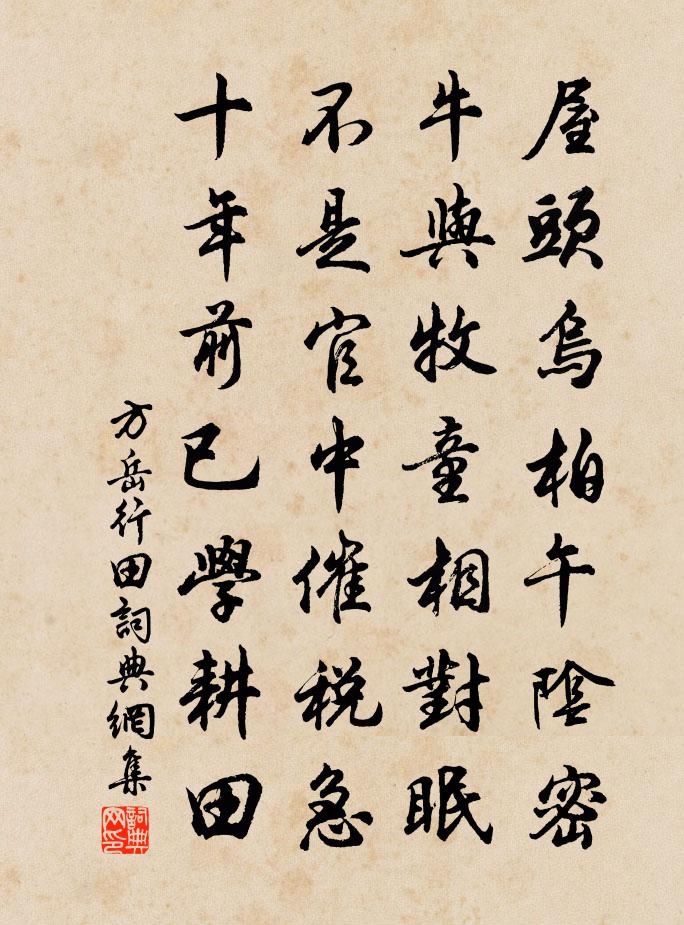 屋頭烏柏午陰密
牛與牧童相對眠
不是官中催税急
十年前已學耕田
方岳行田詞典網集
詞典網印